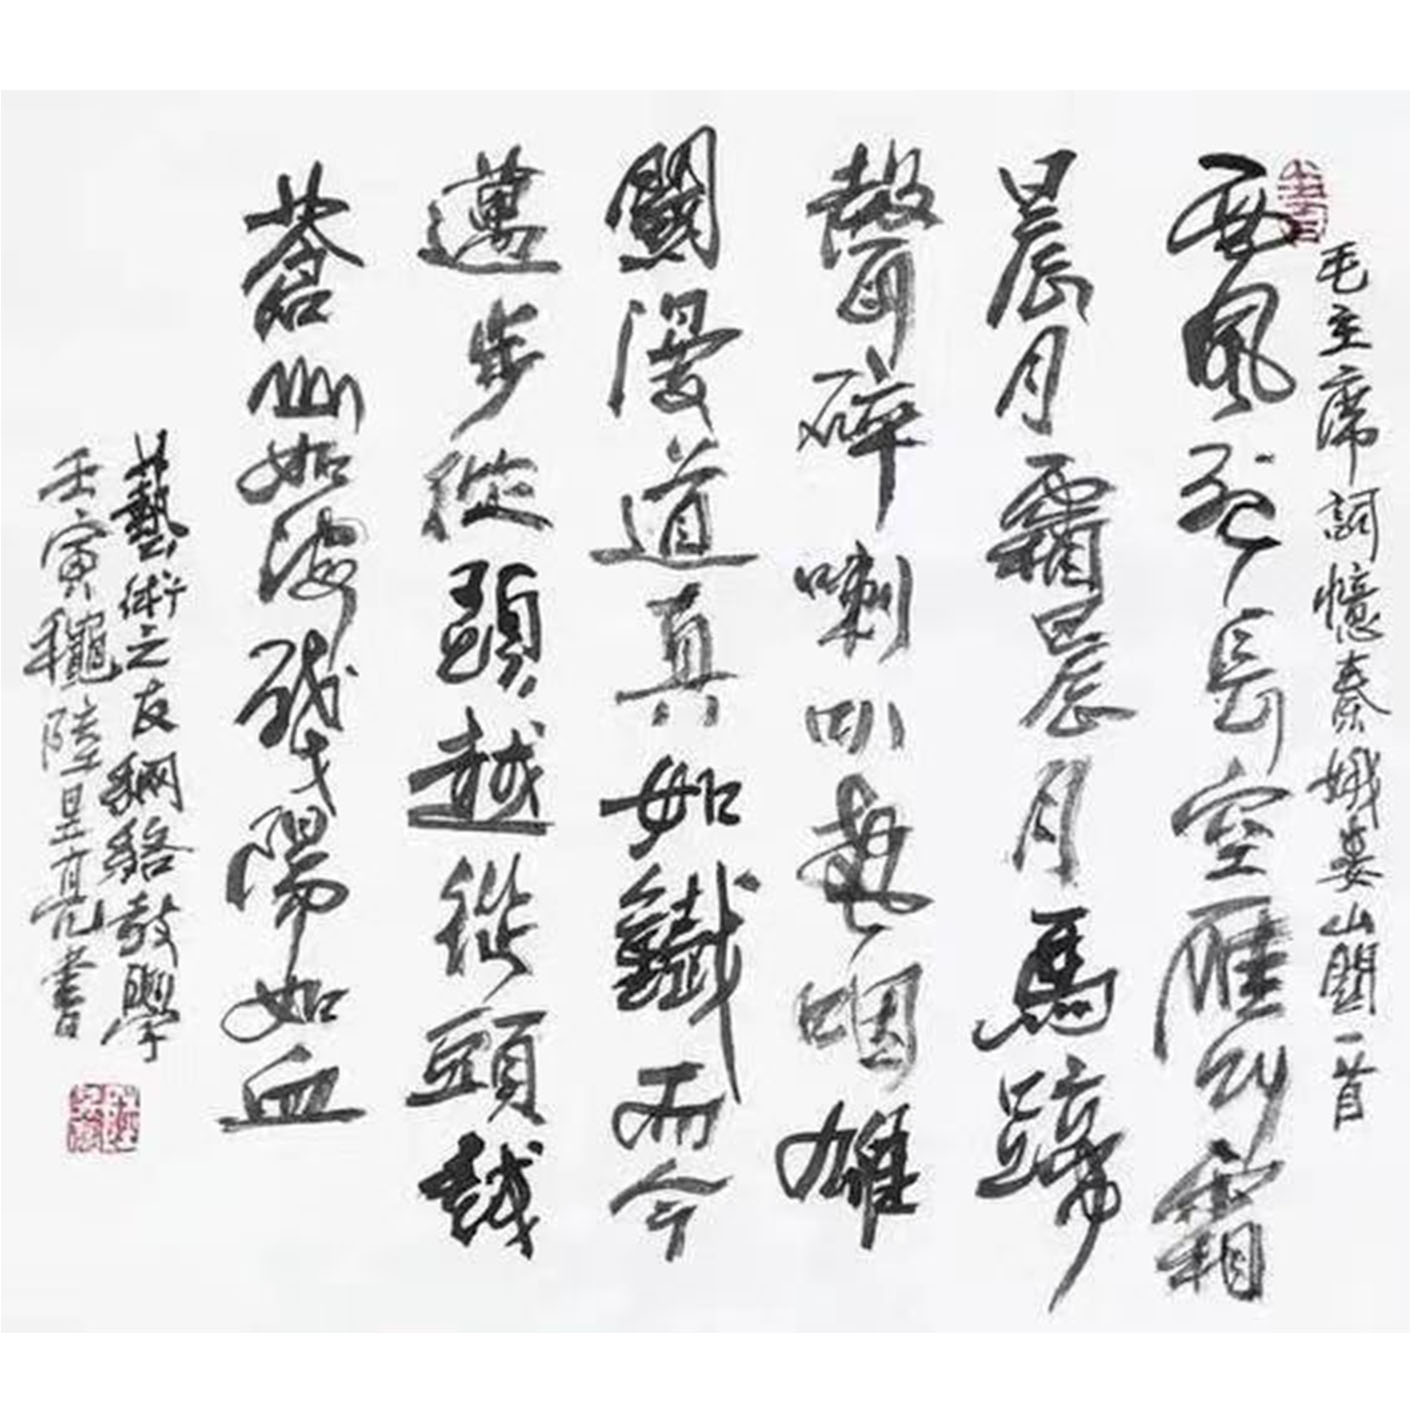 毛主席詞憶秦娥婁山關一首
西風烈長空雁叫霜
晨月霜晨月馬蹄
聲碎喇叭聲咽雄
關漫道真如鐵而今
邁步從頭越從頭越
蒼山如海殘陽如血
藝術之友網絡教學
壬寅龝陸昱亮書